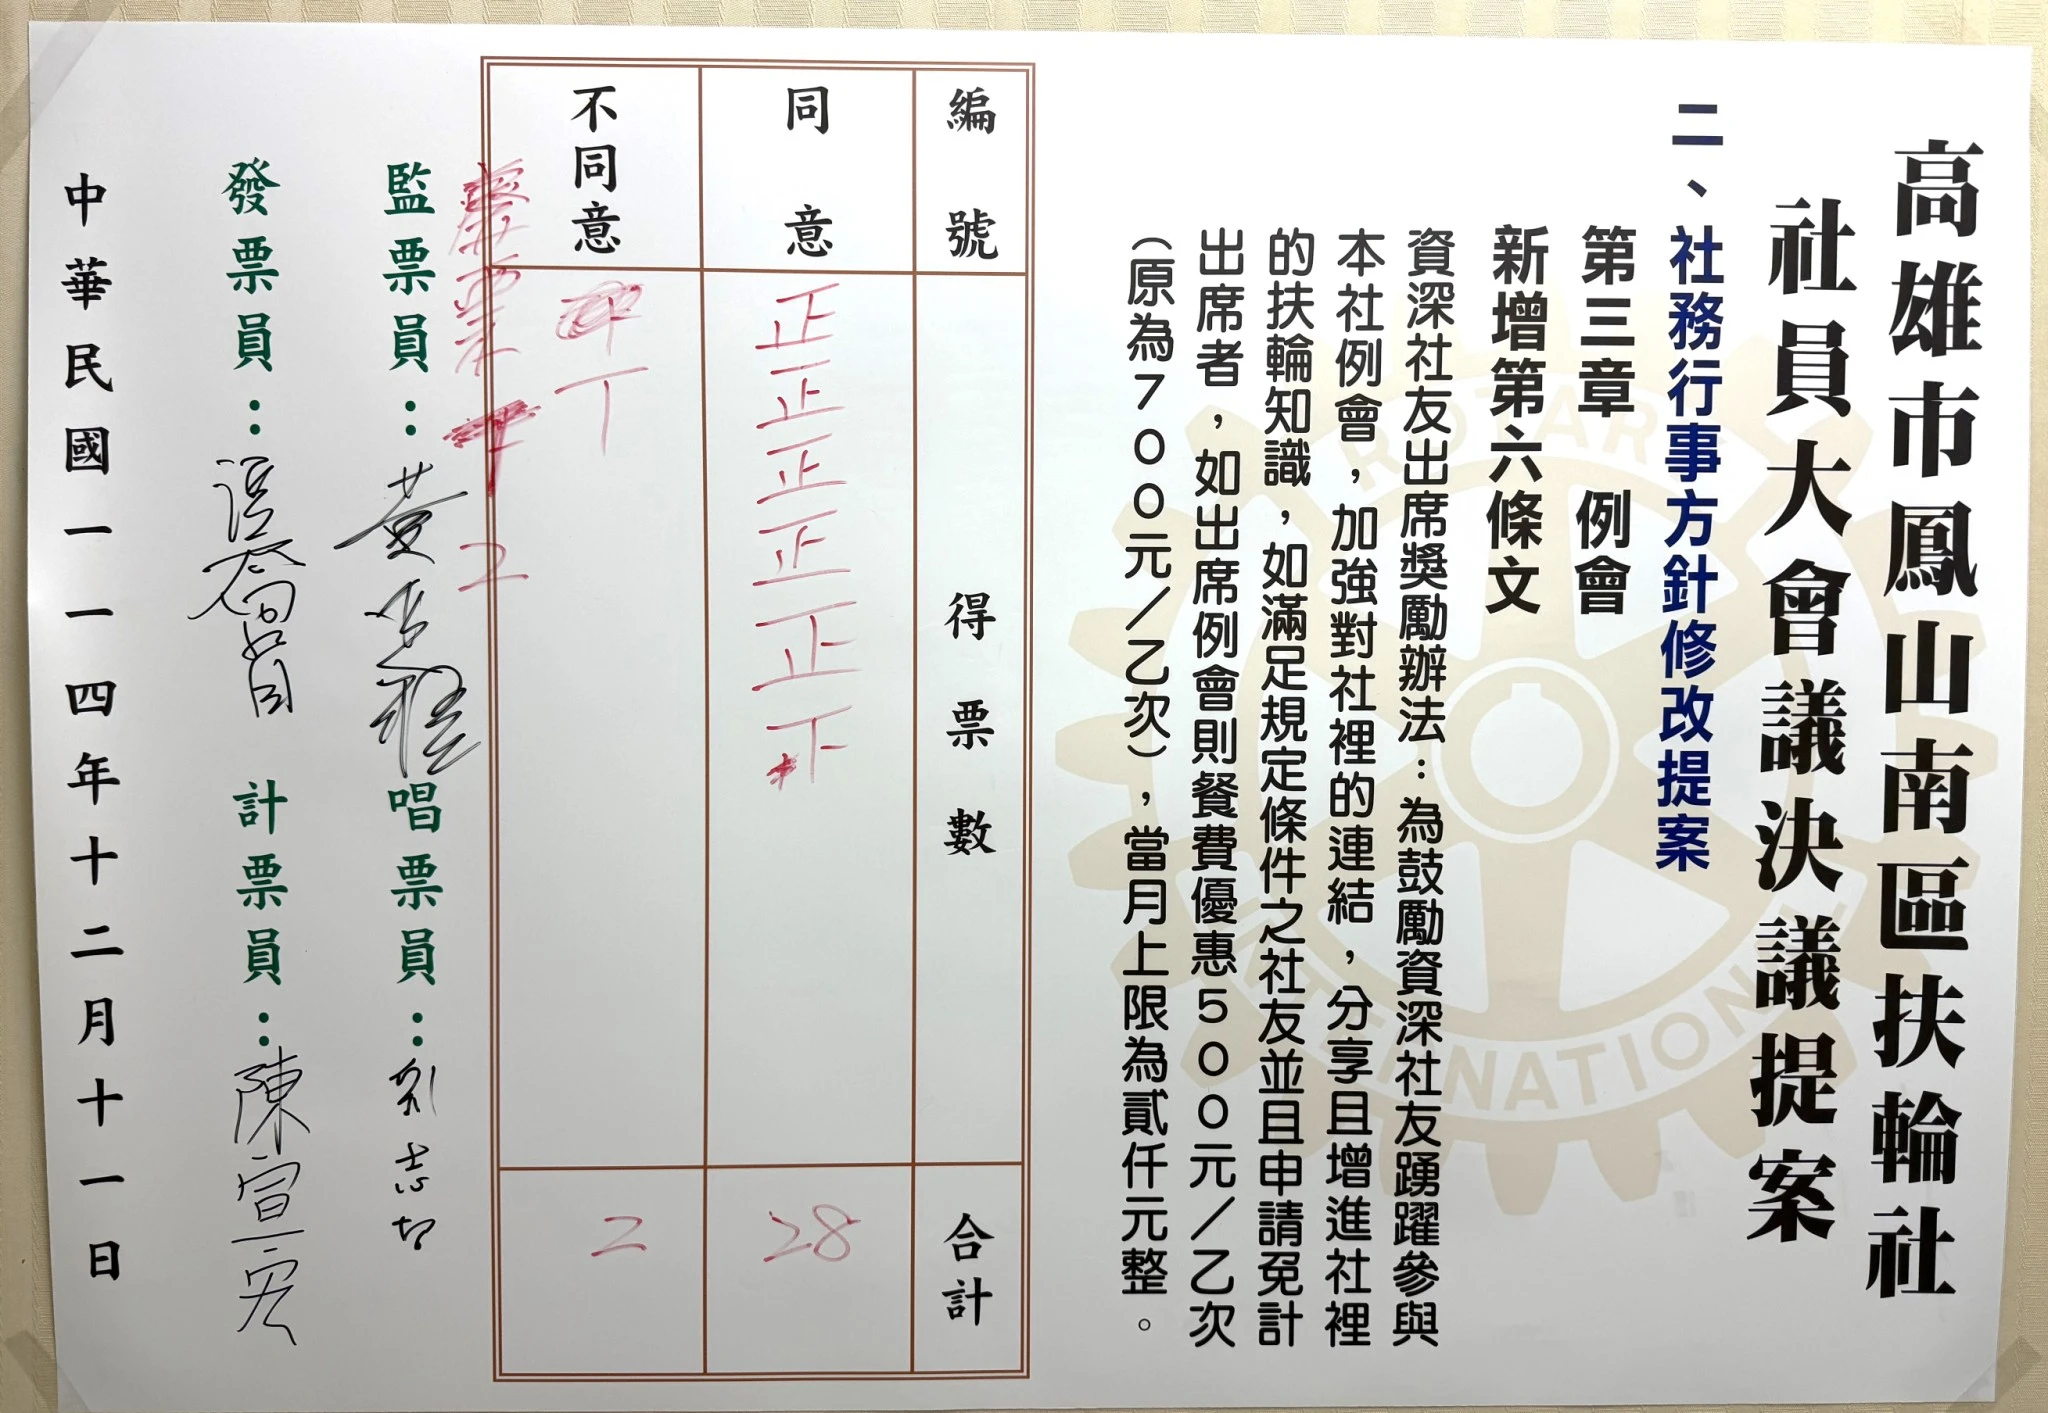 高雄市鳳山南區扶輪社
社員大會議決議提案
二、社務行事方針修改提案
第三章 例會
新增第六條文
資深社友出席獎勵辦法：為鼓勵資深社友踴躍參與
本社例會，加強對社裡的連結，分享且增進社裡
的扶輪知識，如滿足規定條件之社友並且申請免計
出席者，如出席例會則餐費優惠500元／乙次
（原為700元／乙次），當月上限為貳仟元整。
ROTARY
INTERNATIONAL
編號 得票數 合計
同意 正正正正正下 28
不同意 丅 2
2
監票員： 唱票員：
發票員： 計票員：陳宣宏
中華民國一一四年十二月十一日